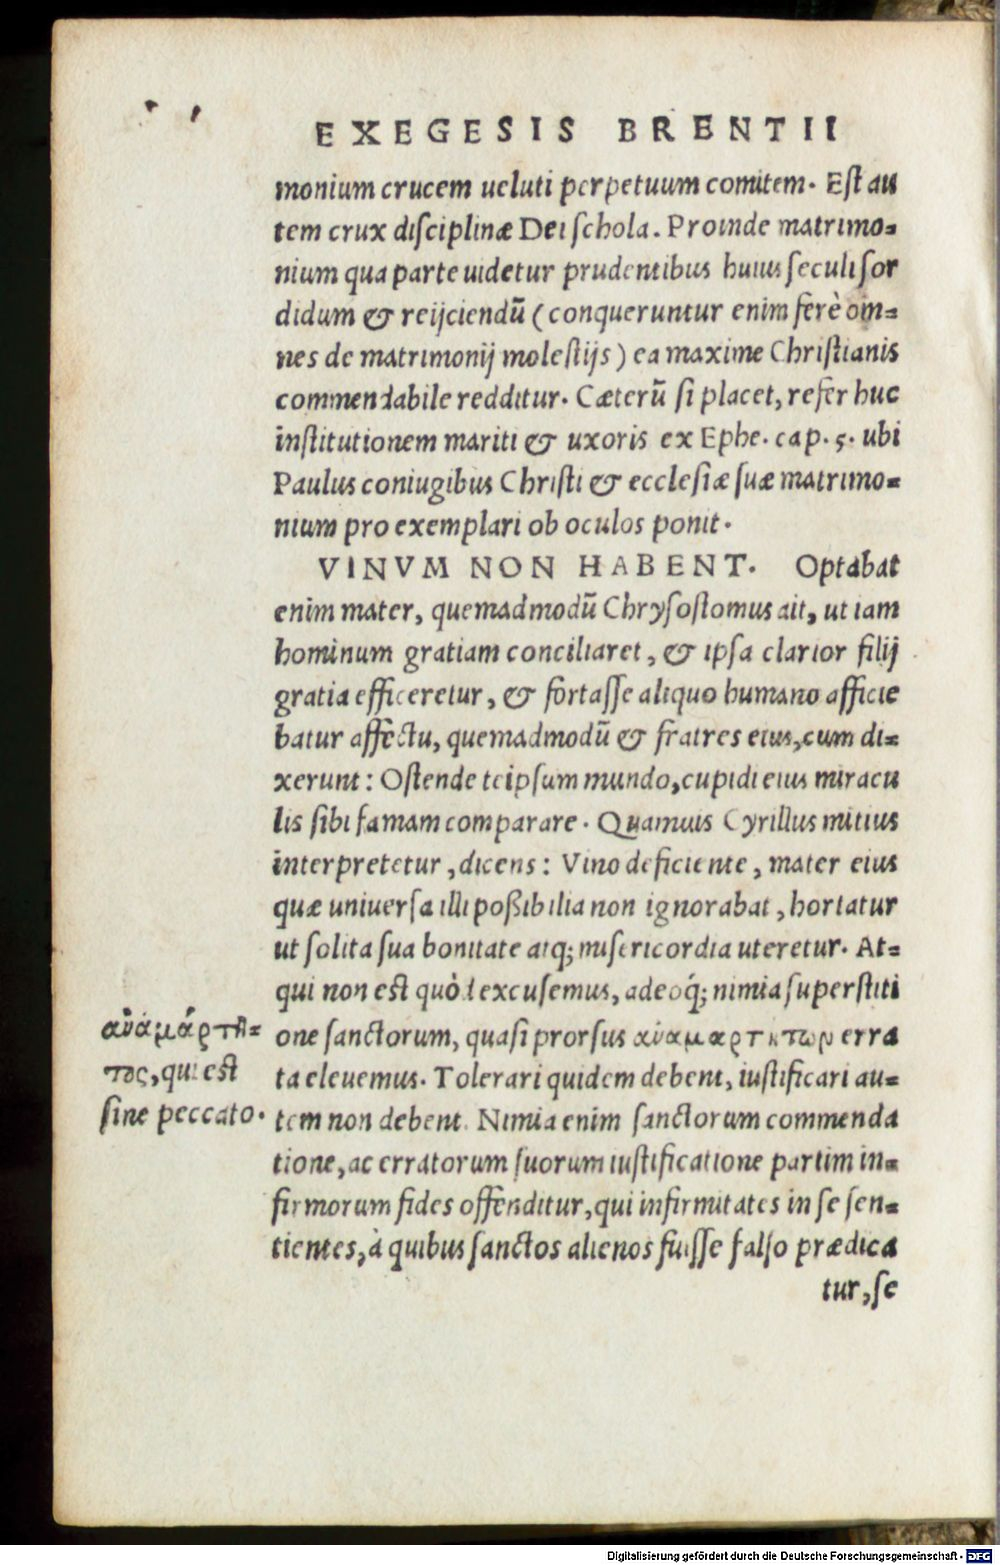 EXEGESIS BRENTII
monium crucem ueluti perpetuum comitem. Est au
tem crux disciplinæ Dei schola. Proinde matrimo=
nium qua parte uidetur prudentibus huius seculi sor
didum & reijciendũ (conqueruntur enim ferè om=
nes de matrimonij molestijs) ea maxime Christianis
commendabile redditur. Cæterũ si placet, refer huc
institutionem mariti & uxoris ex Ephe. cap. 5. ubi
Paulus coniugibus Christi & ecclesiæ suæ matrimo=
nium pro exemplari ob oculos ponit.
VINVM NON HABENT. Optabat
enim mater, quemadmodũ Chrysostomus ait, ut iam
hominum gratiam conciliaret, & ipsa clarior filij
gratia efficeretur, & fortasse aliquo humano afficie
batur affectu, quemadmodũ & fratres eius, cum di=
xerunt: Ostende teipsum mundo, cupidi eius miracu
lis sibi famam comparare. Quamuis Cyrillus mitius
interpretetur, dicens: Vino deficiente, mater eius
quæ uniuersa illi poßibilia non ignorabat, hortatur
ut solita sua bonitate atq; misericordia uteretur. At=
qui non est quòd excusemus, adeoq́; nimia superstiti
one sanctorum, quasi prorsus ἀναμαρτήτων erra
ta eleuemus. Tolerari quidem debent, iustificari au=
tem non debent. Nimia enim sanctorum commenda
tione, ac erratorum suorum iustificatione partim in=
firmorum fides offenditur, qui infirmitates in se sen=
tientes, à quibus sanctos alienos fuisse falso prædica
tur, se
ἀναμάρτη=
τος, qui est
sine peccato.
Digitalisierung gefördert durch die Deutsche Forschungsgemeinschaft - DFG